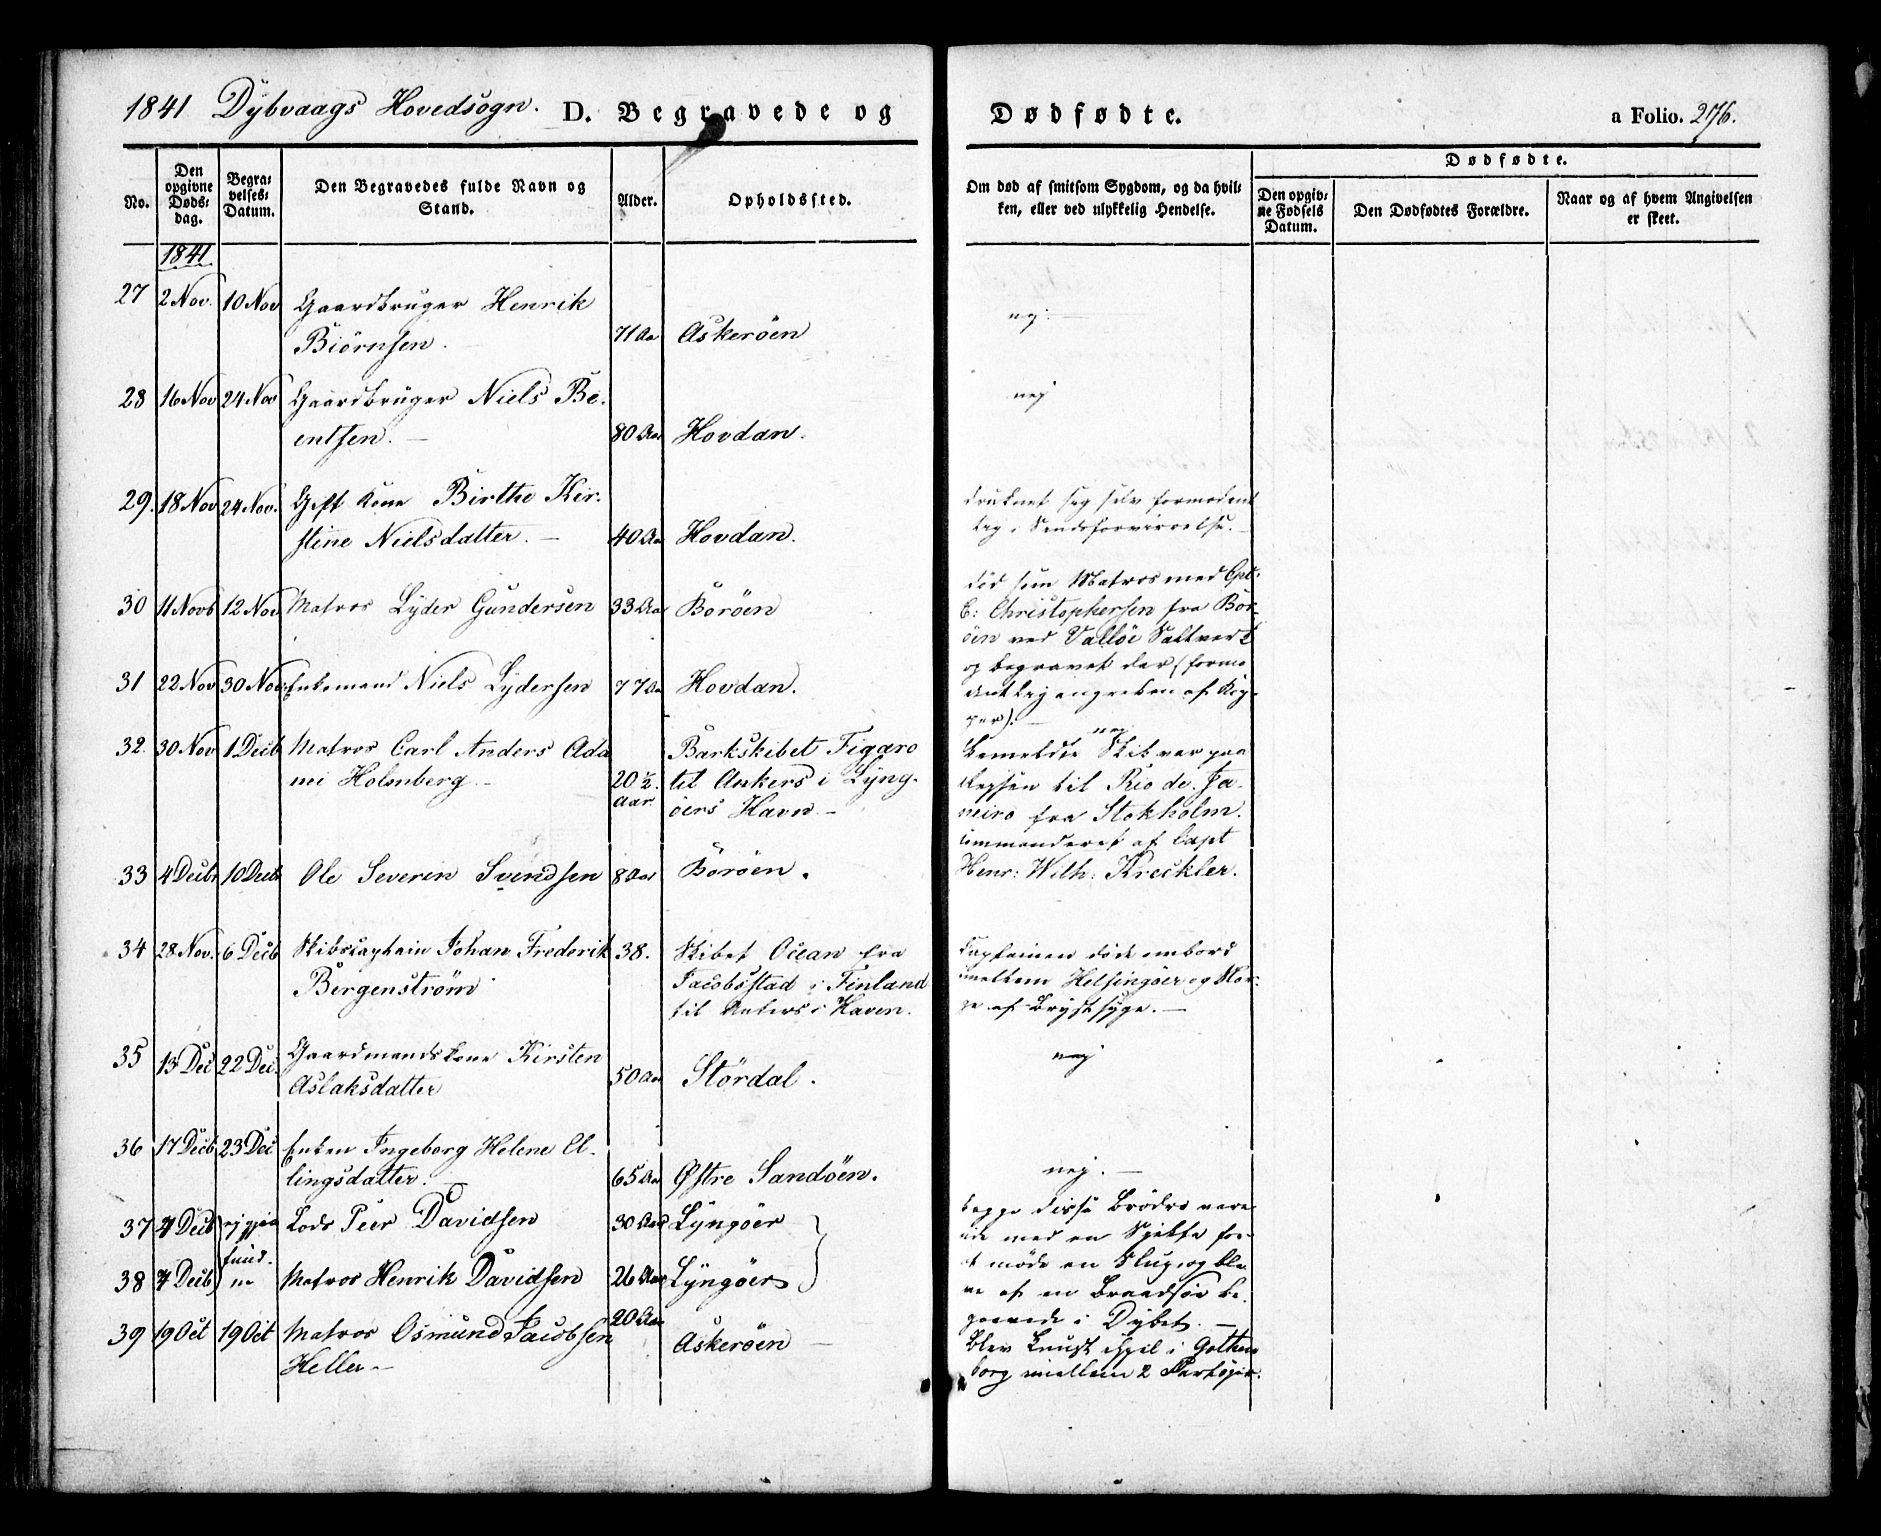 1841 Dybvaags Hovedsogn. D. Begravede og Dødfødte. a Folio. 276.
No.
Den opgivne Døds-dag.
Begra-velses-Datum.
Den Begravedes fulde Navn og Stand.
Alder.
Opholdssted.
Om død af smitsom Sygdom, og da hvil-
ken, eller ved ulykkelig Hendelse.
Dødfødte.
Den opgiv-ne Fødsels Datum.
Den Dødfødtes Forældre.
Naar og af hvem Angivelsen
er skeet.
1841.
27 2 Nov. 10 Nov Gaardbruger Henrik
Biörnsen. 71 Aa Askeröen nej.
28 16 Nov 24 Nov Gaardbruger Niels Be-
entsen. 80 Aar Hovdan. nej
29. 18 Nov 24 Nov. Gift Kone Birthe Kir-
stine Nielsdatter. 40 Aa Hovdan.
druknet sig selv formodent
lig i Sindsforvirrelse.
30 11 Novb 12 Nov Matros Lyder Gundersen 33 Aar Boröen
död som Matros med Cpt.
C: Christophersen fra Bor-
öen ved Vallöe Saltverk
og begravet der (formo
dentlig angreben af Kop-
per).
31 22 Nov 30 Nov Enkemand Niels Lydersen 77 Aa Hovdan.
nej
32. 30 Nov 1 Decb Matros Carl Anders Ada
mi Holmberg 20 1/2 Aar. Barkskibet Figaro
til Ankers i Lyng-
öers Havn
bemeldte Skib var paa
Reysen til Rio de Ja-
neiro fra Stokholm.
commanderet af Capt
Henr: Wilh: Kreckler.
33 4 Decbr 10 Decb Ole Severen Svendsen 8 Aar Boröen.
34 28 Nov. 6 Decb Skibscaptain Johan Frederik 38.
Bergenström
Skibet Ocean fra
Jacobsstad i Finland
til Ankers i Havn.
Captainen döde ombord
imellem Helsingöer og Nor-
ge af Brystsyge.
35 13 Dec 22 Dec. Gaardmandskone Kirsten
Aslaksdatter 50 Aar Stördal. nej
36 17 Decb 23 Dec Enken Ingeborg Helene El-
lingsdatter. 65 Aar Østre Sandöen. nej.
37 4 Decb ej gjen Lods Peer Davidsen 30 Aar Lyngöer
fund-
38 4 Decb ne Matros Henrik Davidsen 26 Aar Lyngöer
begge disse Brödre vare
ude med en Sjekte for
at möde en Slup, og ble
ve af en Braadsöe be-
gravede i Dybet.
39 19 Oct 19 Oct Matros Osmund Jacobsen
Heller 20 Aar Askeröen
Blev knust ihjel i Gothen
borg mellem 2 Fartöjer.